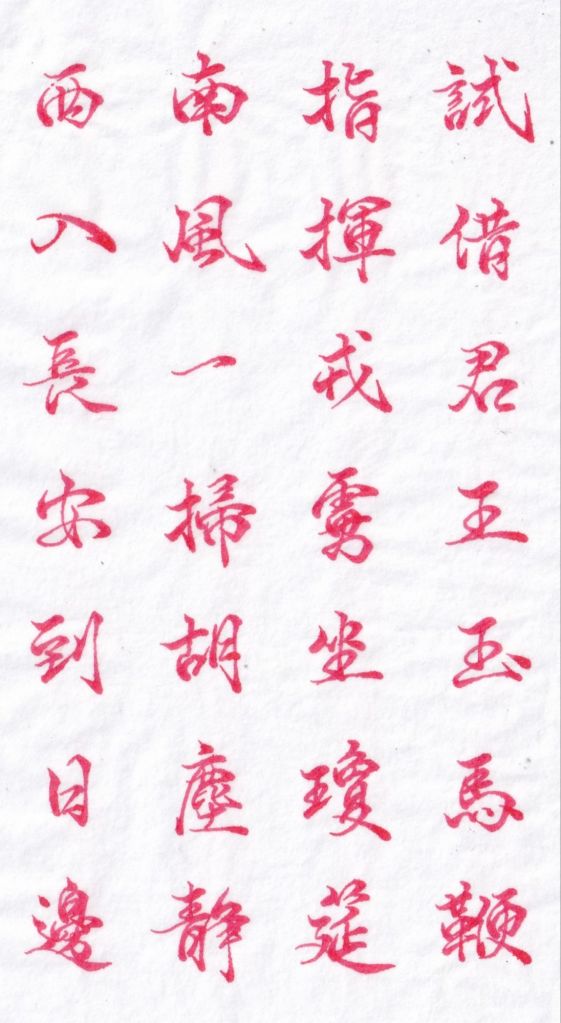 試借君王玉馬鞭
指揮戎虜坐瓊筵
南風一掃胡塵靜
西入長安到日邊